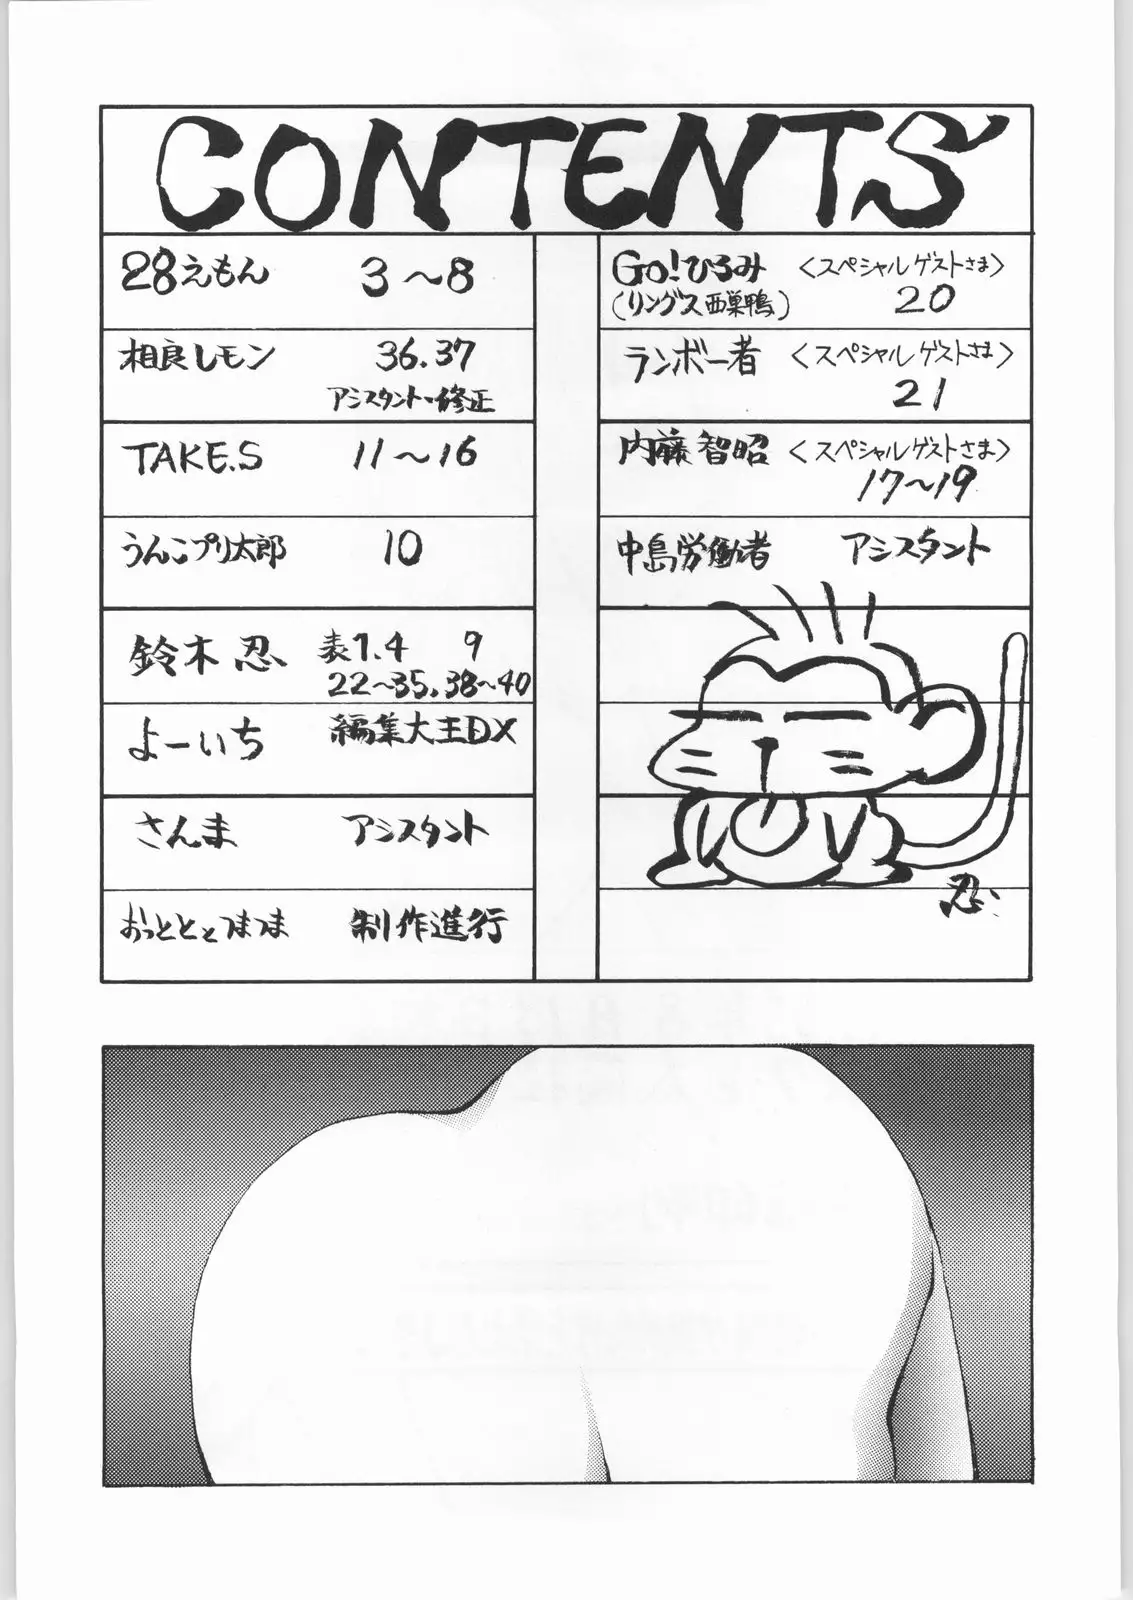 CONTENTS
28えもん 3〜8
相良レモン 36.37
アシスタント・修正
TAKE.S 11〜16
うんこプリ太郎 10
鈴木 忍 表1.4 9
22〜35.38〜40
よーいち 編集大王DX
さんま アシスタント
おっとととつまつま 制作進行
Go!ひろみ <スペシャルゲストさま>
(リングス西巣鴨) 20
ランボー者 <スペシャルゲストさま>
21
内藤智昭 <スペシャルゲストさま>
17〜19
中島労働者 アシスタント
忍